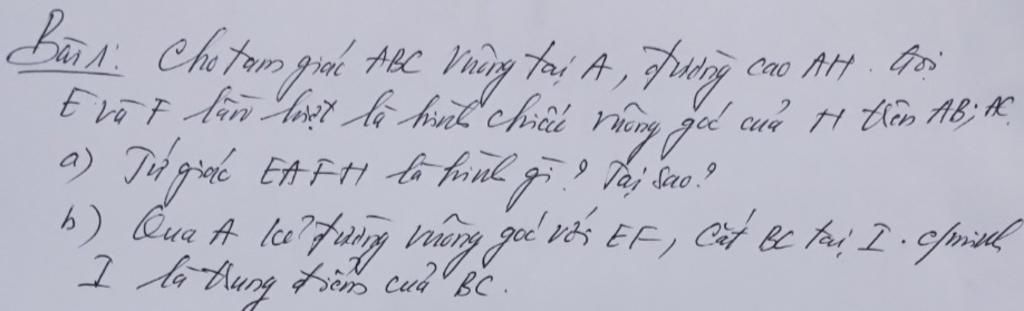 Bài 1: Cho tam giác ABC vuông tại A, đường cao AH. Gọi
E và F lần lượt là hình chiếu vuông góc của H trên AB; AC.
a) Tứ giác EAFH là hình gì? Tại sao?
b) Qua A kẻ đường vuông góc với EF, cắt BC tại I. c/minh
I là trung điểm của BC.